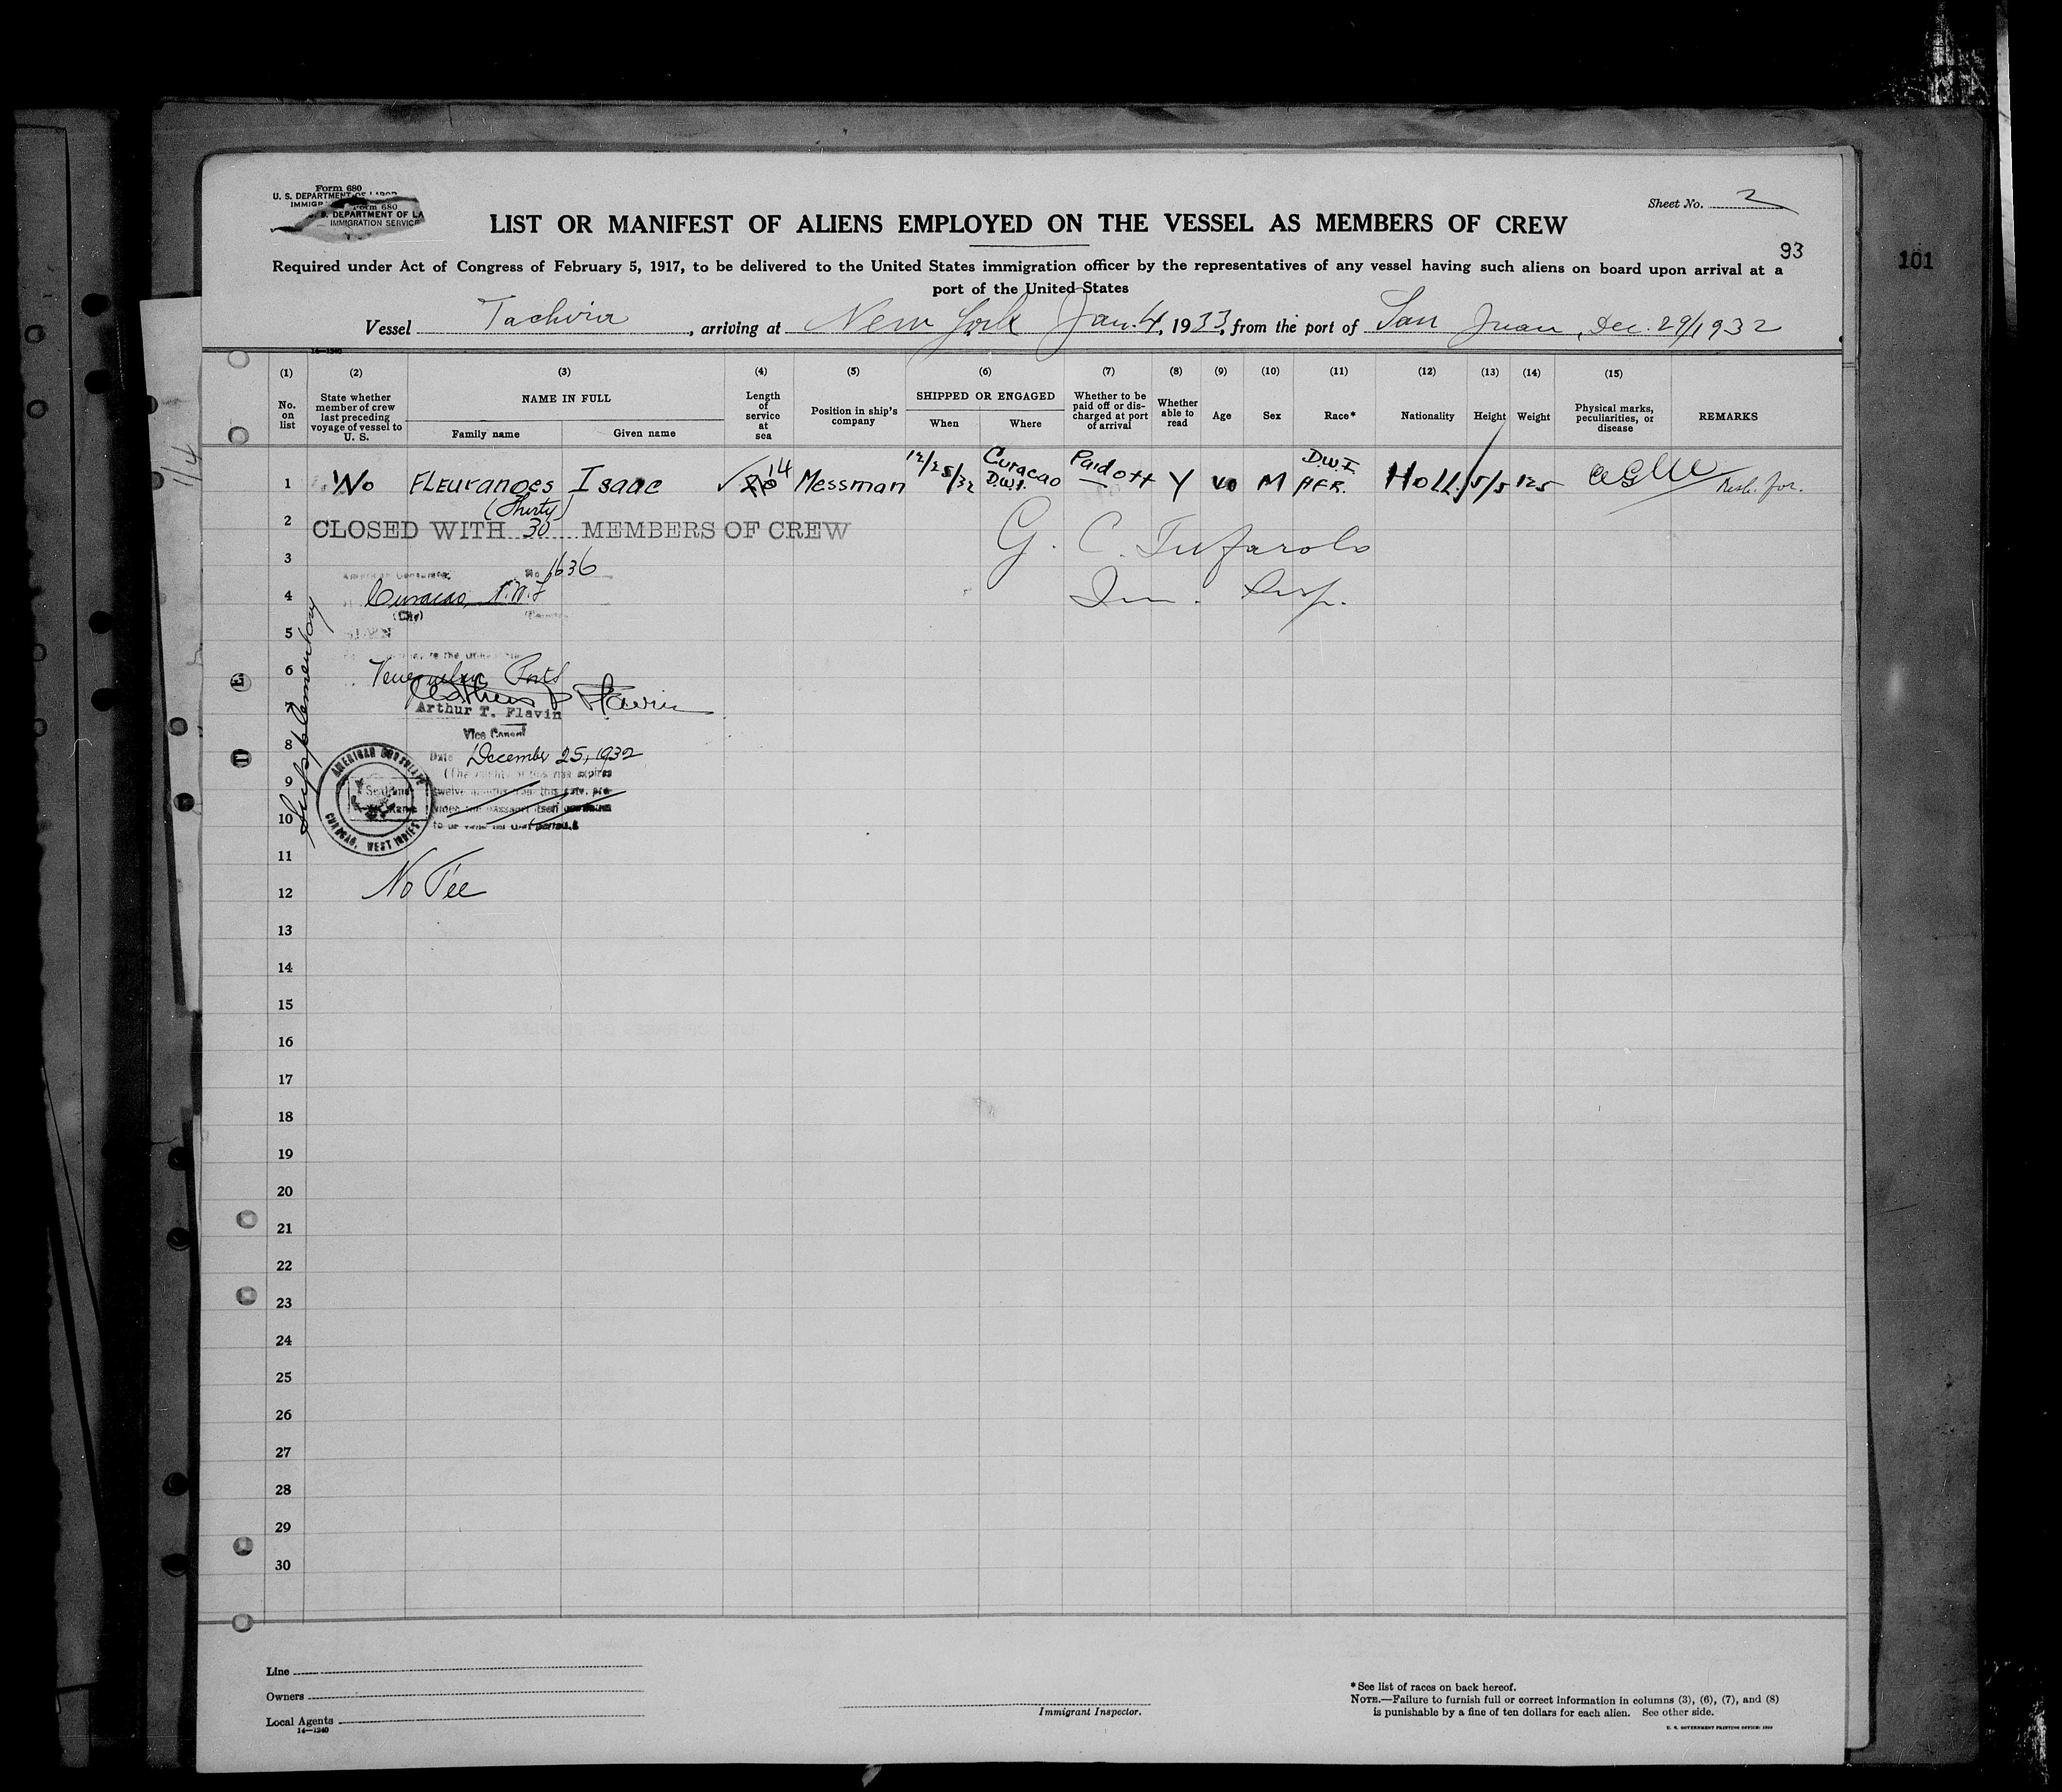 Form 680
U. S. DEPARTMENT OF LABOR
Form 680
DEPARTMENT OF LA
IMMIGRATION SERVICE
Sheet No. 2
LIST OR MANIFEST OF ALIENS EMPLOYED ON THE VESSEL AS MEMBERS OF CREW
93
101
Required under Act of Congress of February 5, 1917, to be delivered to the United States immigration officer by the representatives of any vessel having such aliens on board upon arrival at a
port of the United States
Vessel Tachira, arriving at New York Jan. 4, 1933, from the port of San Juan, Dec. 29/1932
14—1240
(1) (2) (3) (4) (5) (6) (7) (8) (9) (10) (11) (12) (13) (14) (15)
No. on list
State whether member of crew last preceding voyage of vessel to U. S.
NAME IN FULL
Family name
Given name
Length of service at sea
Position in ship's company
SHIPPED OR ENGAGED
When
Where
Whether to be paid off or discharged at port of arrival
Whether able to read
Age
Sex
Race*
Nationality
Height
Weight
Physical marks, peculiarities, or disease
REMARKS
1 No Fleuranges Isaac 14 Messman 12/25/32 Curacao D.W.I. Paid off Y 40 M D.W.I. AFR. Holl. 5/5 125
(Thirty)
2 CLOSED WITH 30 MEMBERS OF CREW
G. C. Tufarolo
3
No. 1636
4 Curacao, N.W.I
Im. Insp.
(City)
5
6 Venezuelan Ports
7 Arthur T. Flavin
Arthur T. Flavin
Vice Consul
8 Date December 25, 1932
9
10
Supplementary
AMERICAN CONSULATE
CURACAO, WEST INDIES
11
12 No Fee
13
14
15
16
17
18
19
20
21
22
23
24
25
26
27
28
29
30
1/4
Line
Owners
Local Agents
14—1240
Immigrant Inspector.
*See list of races on back hereof.
NOTE.—Failure to furnish full or correct information in columns (3), (6), (7), and (8)
is punishable by a fine of ten dollars for each alien. See other side.